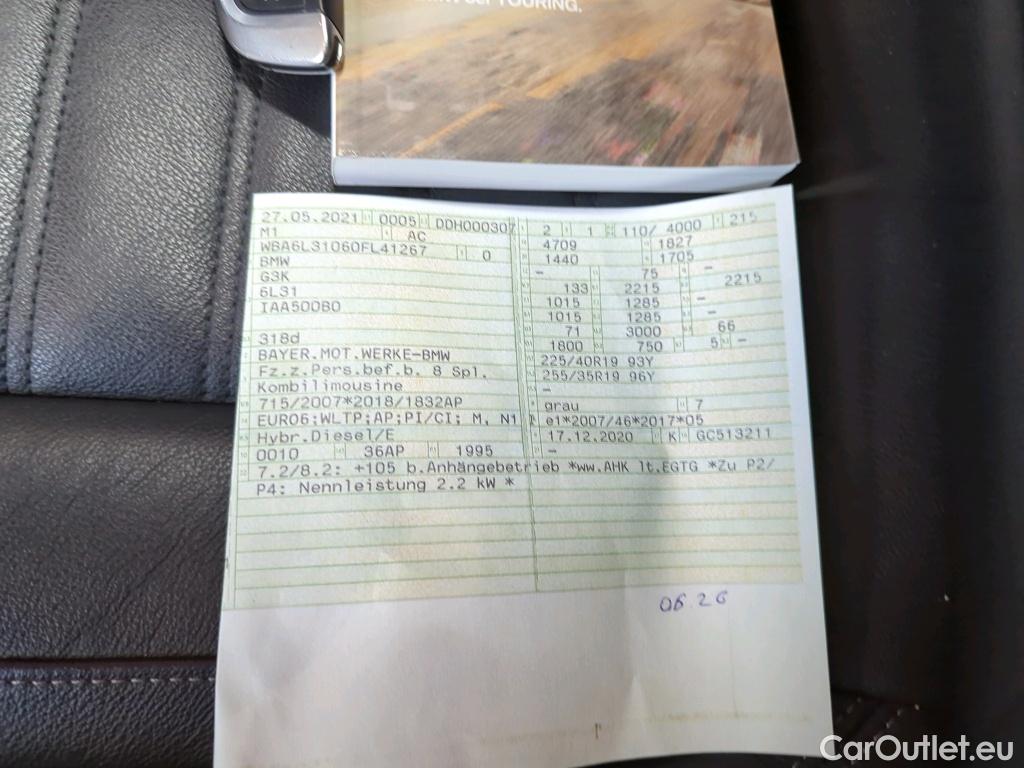 TOURING.
27.05.2021 0005 DDH000307 2 1 110/ 4000 215
M1 AC 4709 1827
WBA6L31060FL41267 0 1440 1705
BMW – 75 –
G3K 133 2215 2215
6L31 1015 1285 –
IAA500B0 1015 1285 –
71 3000 66
318d 1800 750 5 –
BAYER.MOT.WERKE–BMW 225/40R19 93Y
Fz.z.Pers.bef.b. 8 Spl. 255/35R19 96Y
Kombilimousine –
715/2007*2018/1832AP grau 7
EURO6;WLTP;AP;PI/CI; M, N1 e1*2007/46*2017*05
Hybr.Diesel/E 17.12.2020 K GC513211
0010 36AP 1995 –
7.2/8.2: +105 b.Anhängebetrieb *ww.AHK lt.EGTG *Zu P2/
P4: Nennleistung 2.2 kW *
06.26
CarOutlet.eu